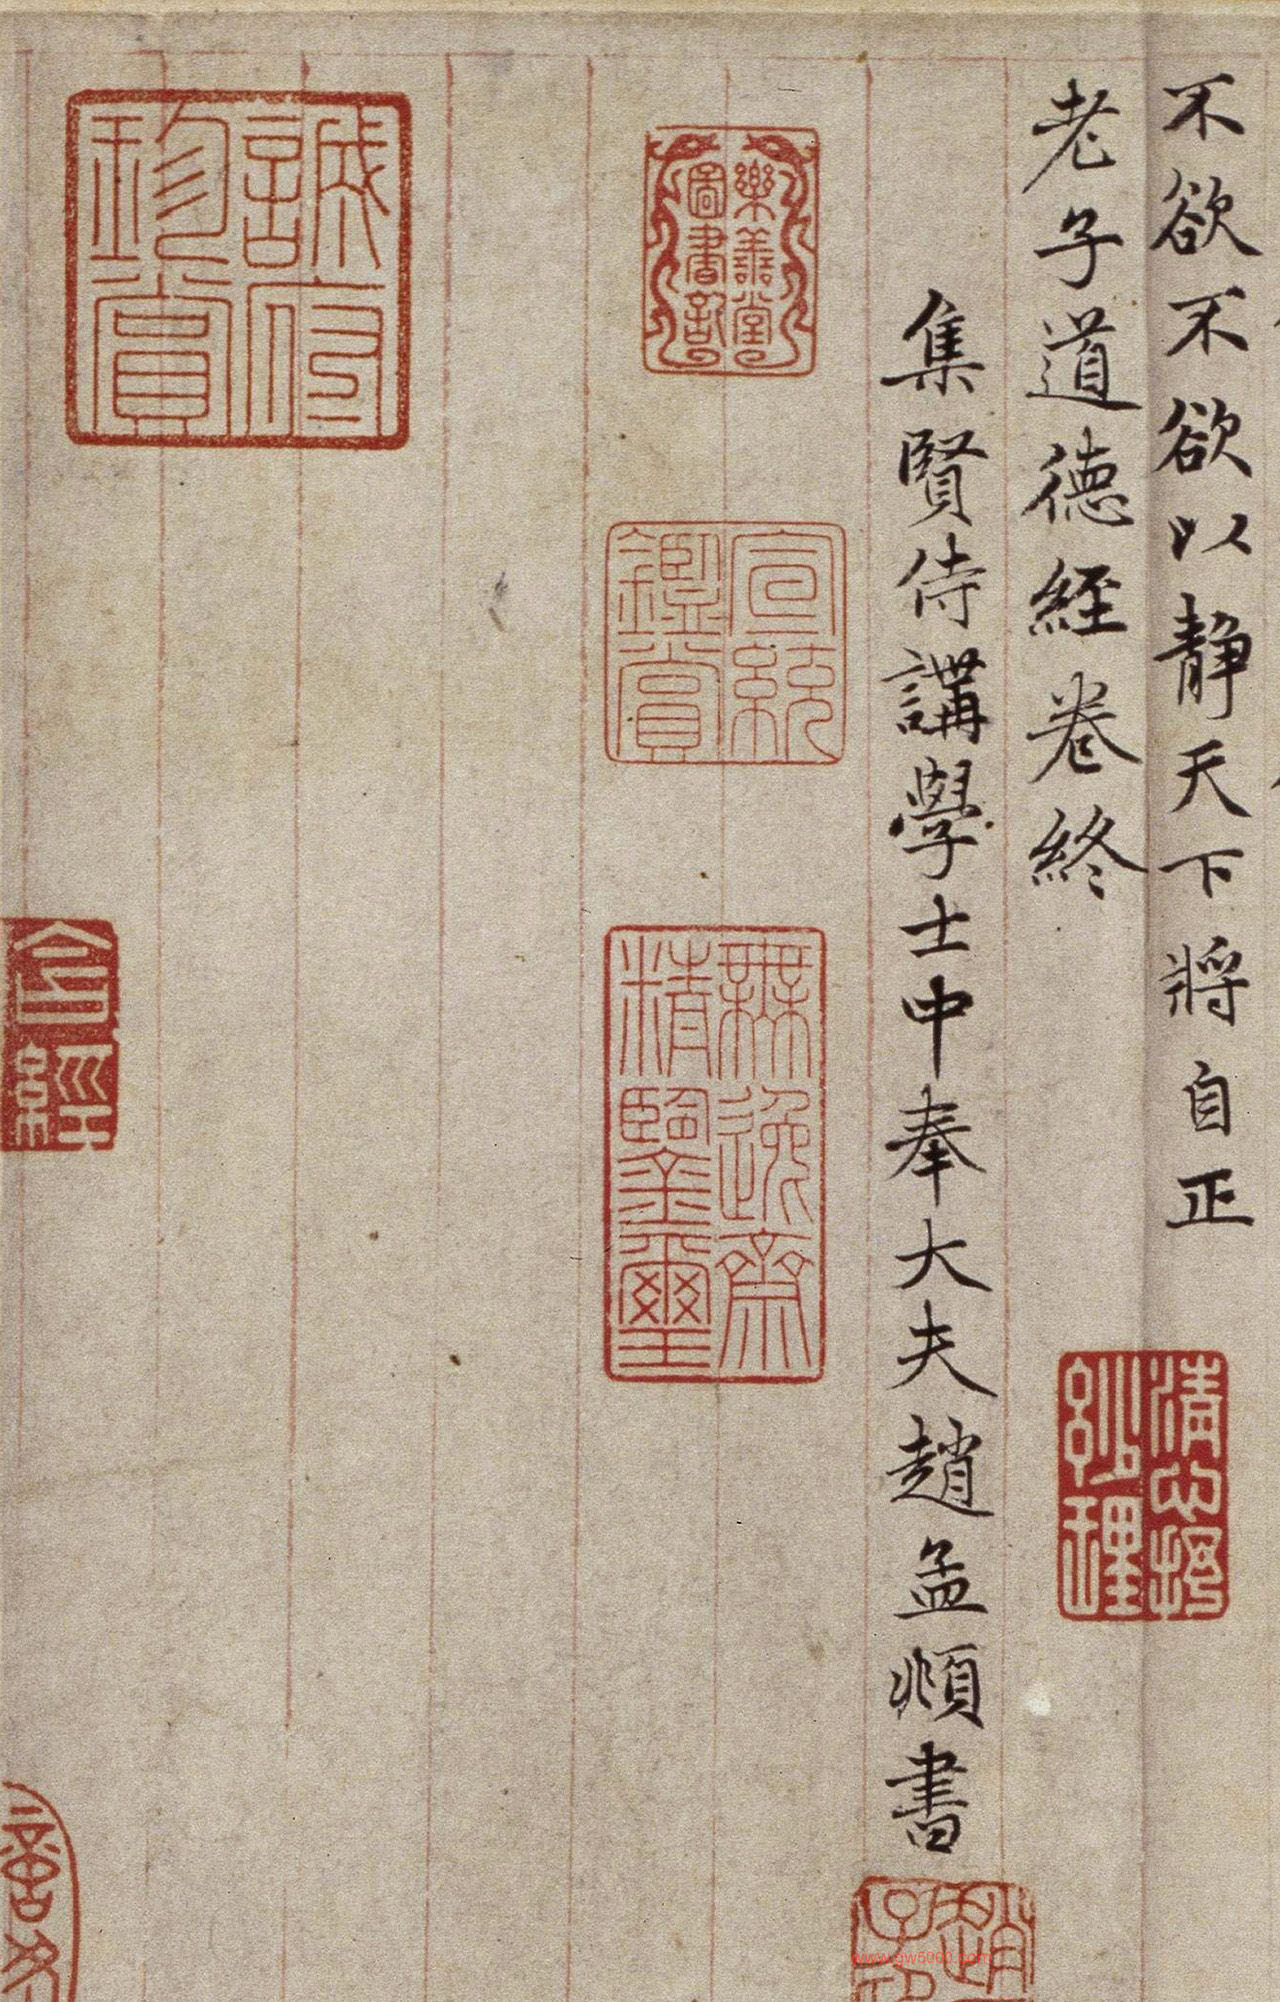 不欲不欲以静天下將自正
老子道德經卷終
集賢侍講學士中奉大夫趙孟頫書
樂善堂圖書記
宣統鑑賞
無逸齋精鑒璽
誠府珍賞
www.gw5000.com